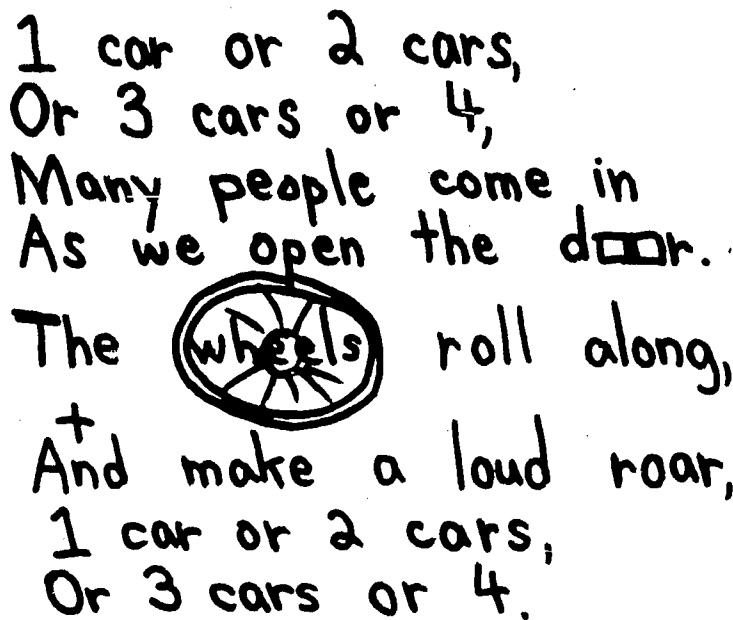 1 car or 2 cars,
Or 3 cars or 4,
Many people come in
As we open the door.
The wheels roll along,
+
And make a loud roar,
1 car or 2 cars,
Or 3 cars or 4.